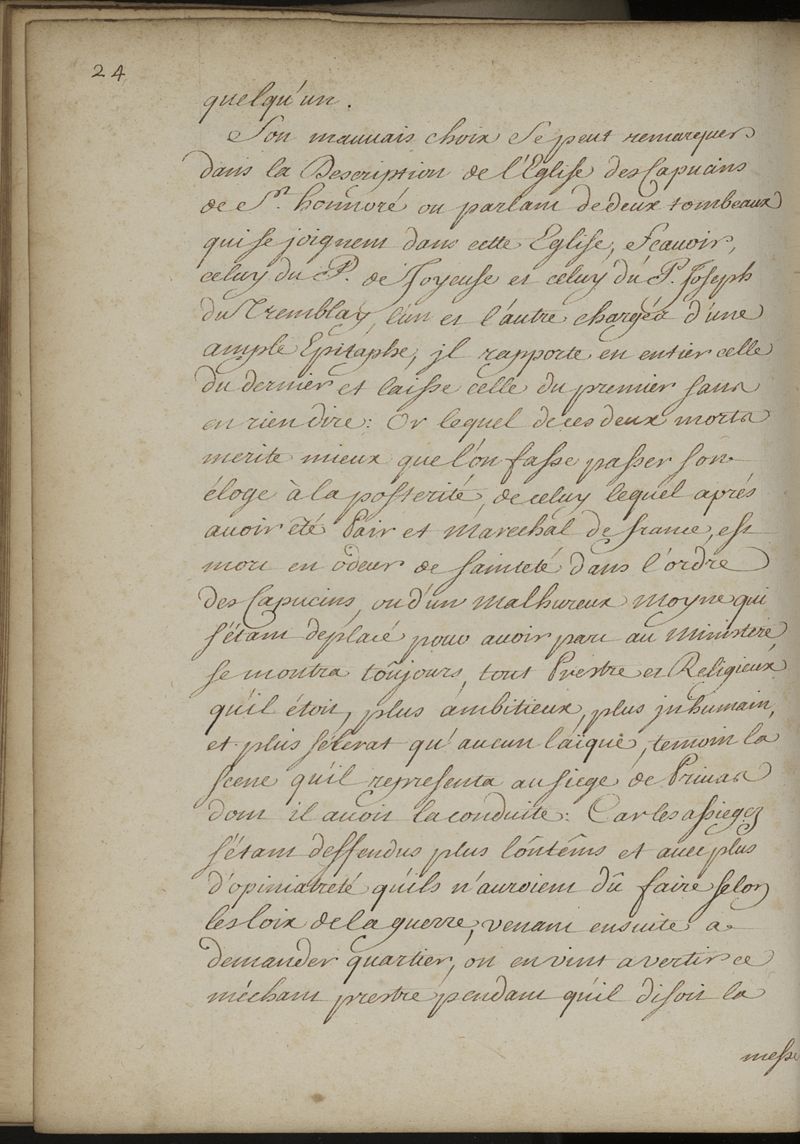 24
quelqu'un.
Son mauuais choix se peut remarquer
dans la Description de l'Eglise des Capucins
de St. honnoré ou parlant de deux tombeaux
qui se joignent dans cette Eglise, Scauoir,
celuy du P. de Joyeuse et celuy du P. Joseph
du Tremblay, l'un et l'autre chargés d'une
ample Epitaphe, jl rapporte en entier celle
du dernier et laisse celle du premier sans
en rien dire: Or lequel de ces deux morts
merite mieux que l'on fasse passer son
éloge à la posterité, de celuy lequel aprés
auoir été Pair et Marechal de france, est
mort en odeur de sainteté dans l'ordre
des Capucins, ou d'un malhureux Moyne qui
s'étant déplacé pour auoir part au Ministere,
se montra toûjours, tout Prestre et Religieux
qu'il étoit, plus ambitieux, plus jnhumain,
et plus sélerat qu'aucun laïque, temoin la
scene qu'il representa au siege de Priuas
dont il auoit la conduite: Car les assiegez
s'étant deffendus plus lôntêms et auec plus
d'opiniatreté qu'ils n'auroient dû faire selon
les loix de la guerre, venant ensuite a
demander quartier, on en vint avertir ce
méchant prestre pendant qu'il disoit la
messe